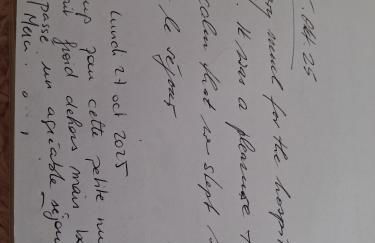 Oct. 25
very much for the hospit
It was a pleasure t
calm that we slept
le séjour
lundi 27 oct 2025
up pour cette petite nu
ait froid dehors mais
passé un agréable séjou
Merci